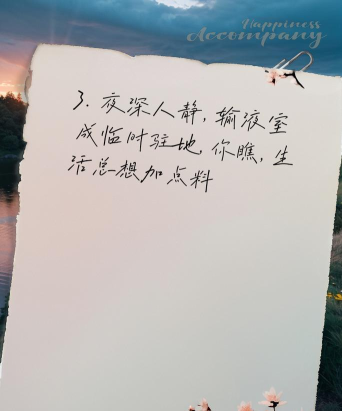 Happiness
Accompany
3. 夜深人静，输液室
成临时驻地，你瞧，生
活总想加点料